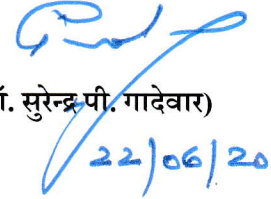 . सुरेन्द्र पी. गादेवार)
22/06/20